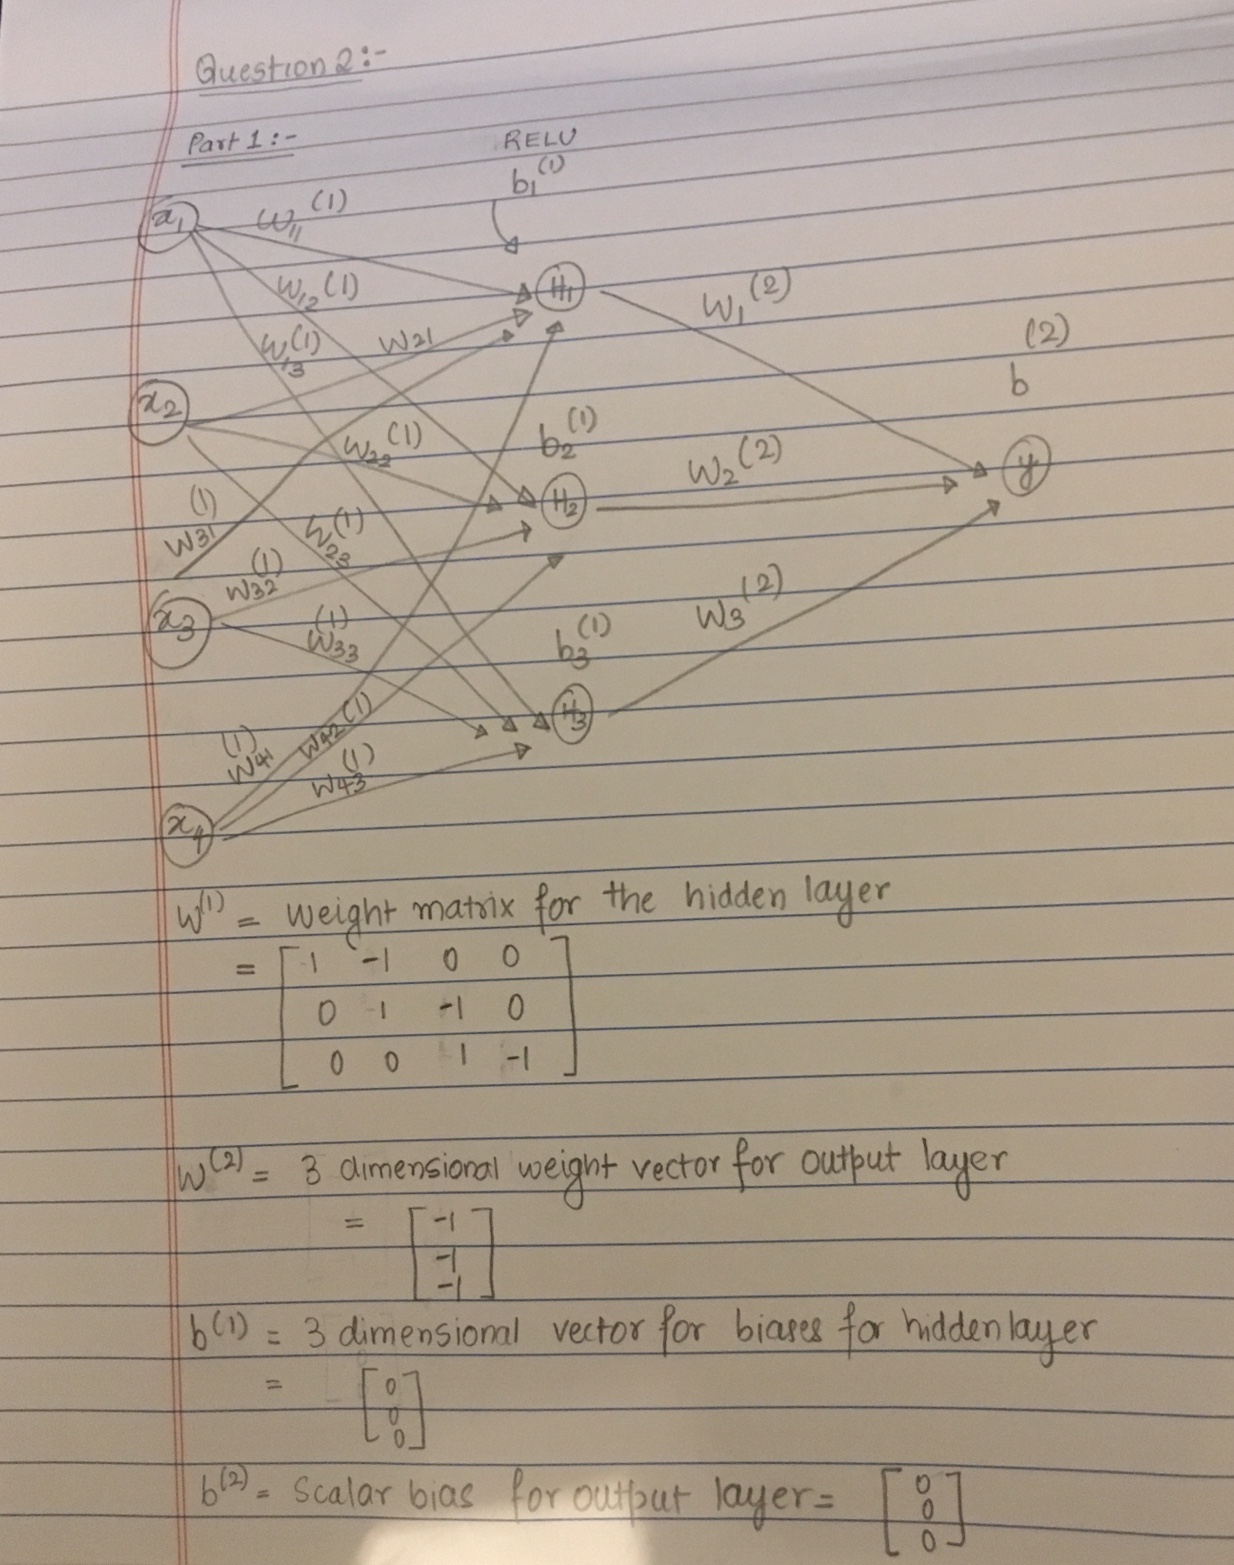 Question 2:-
Part 1:-
RELU
b₁⁽¹⁾
x₁
w₁₁⁽¹⁾
w₁₂⁽¹⁾
H₁
w₁⁽²⁾
w₁₃⁽¹⁾
w21
b⁽²⁾
x₂
w₂₂⁽¹⁾
b₂⁽¹⁾
w₂⁽²⁾
y
H₂
w31⁽¹⁾
w₂₃⁽¹⁾
w32⁽¹⁾
x₃
w33⁽¹⁾
b₃⁽¹⁾
w3⁽²⁾
H₃
w41⁽¹⁾
w42⁽¹⁾
w43⁽¹⁾
x₄
w⁽¹⁾ = weight matrix for the hidden layer
= [ 1 -1 0 0
0 1 -1 0
0 0 1 -1 ]
w⁽²⁾ = 3 dimensional weight vector for output layer
= [ -1
-1
-1 ]
b⁽¹⁾ = 3 dimensional vector for biases for hidden layer
= [ 0
0
0 ]
b⁽²⁾ = Scalar bias for output layer = [ 0
0
0 ]